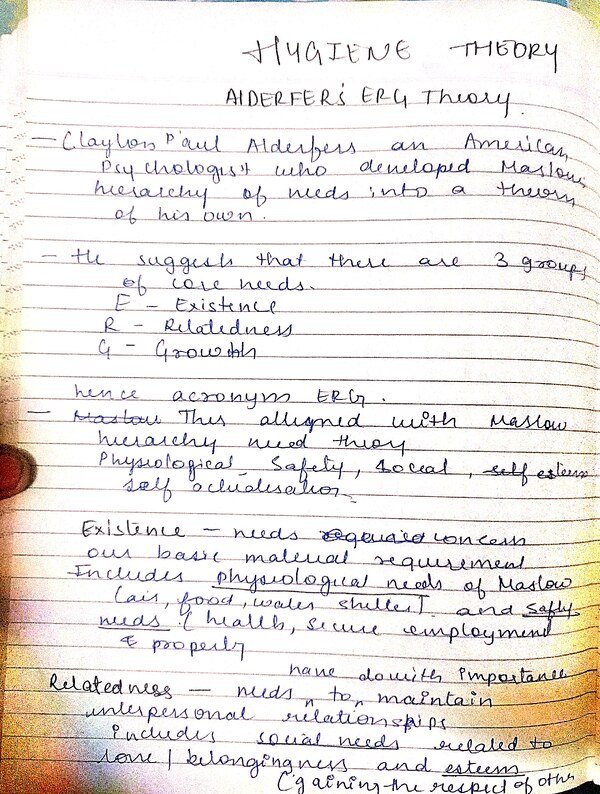 HYGIENE THEORY
AlDERFER'S ERG Theory.
— Clayton Paul Alderfers an American
Psychologist who developed Maslows
hierarchy of needs into a theory
of his own.
— He suggests that there are 3 groups
of core needs.
E - Existence
R - Relatedness
G - Growth
hence acronym ERG.
— Maslow This alligned with Maslow
hierarchy need theory
Physiological, Safety, Social, self esteem
self actualisation
Existence — needs concern
our basic material requirement
Includes physiological needs of Maslow
(air, food, water shelter) and safty
needs (health, secure employment
& property
have do with importance
Relatedness — needs to maintain
interpersonal relationships
includes social needs related to
love / belongingness and esteem
(gaining the respect of other